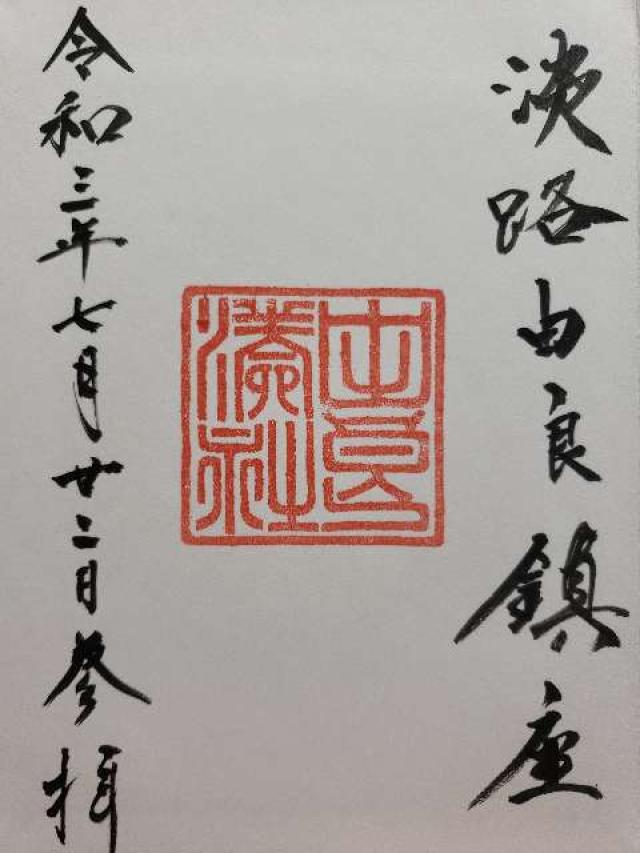 淡路由良鎮座
由良
湊社
令和三年七月廿二日參拝